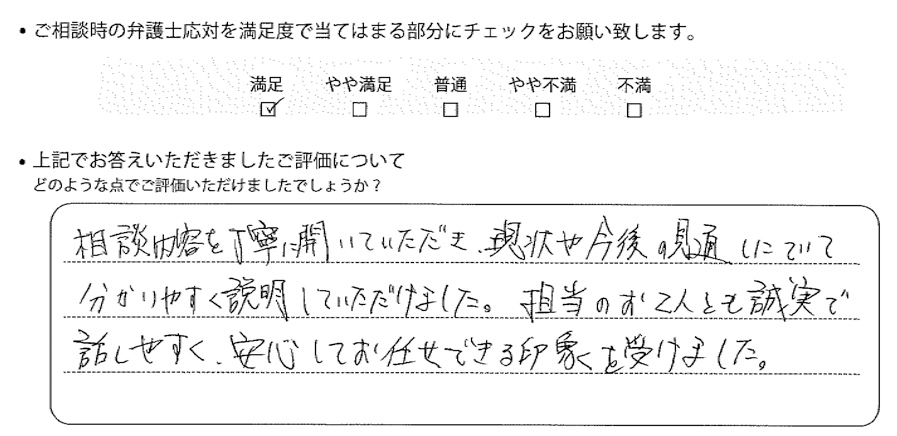 ・ご相談時の弁護士応対を満足度で当てはまる部分にチェックをお願い致します。
満足 やや満足 普通 やや不満 不満
☑ □ □ □ □
・上記でお答えいただきましたご評価について
どのような点でご評価いただけましたでしょうか？
相談内容を丁寧に聞いていただき、現状や今後の見通しについて
分かりやすく説明していただけました。担当のお2人とも誠実で
話しやすく、安心してお任せできる印象を受けました。